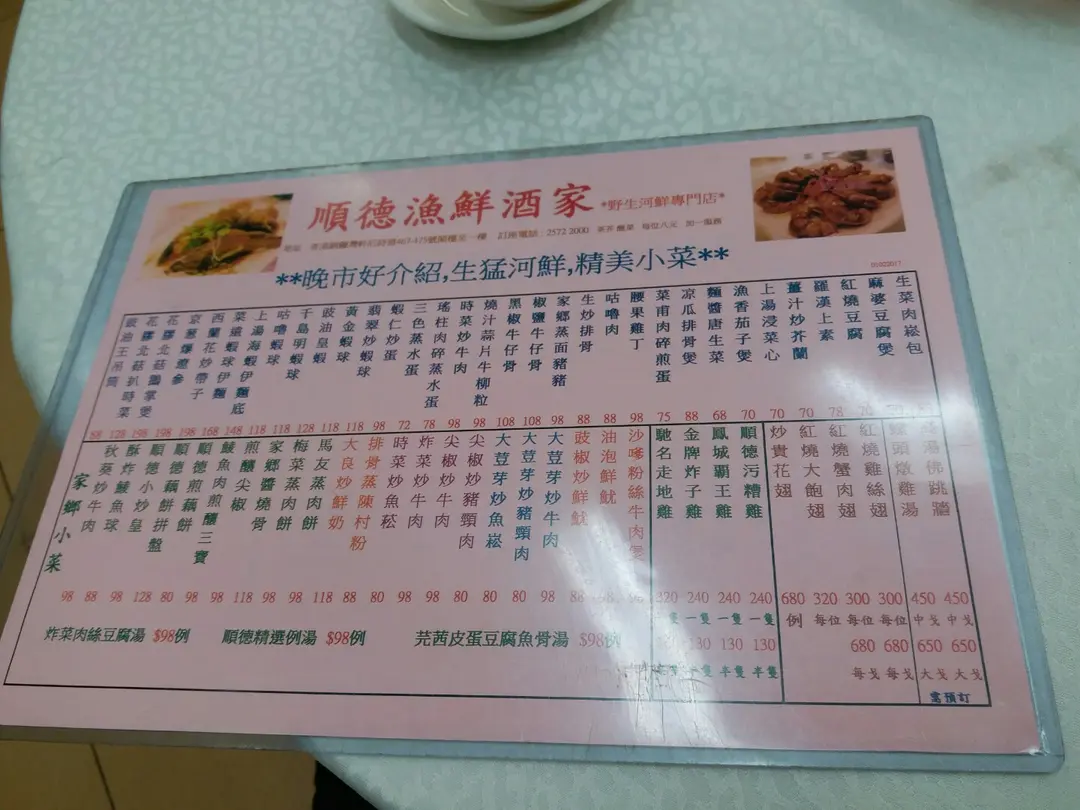 順德漁鮮酒家 *野生河鮮專門店*
訂座電話：2572 2000 茶芥 每位八元 加一服務
**晚市好介紹,生猛河鮮,精美小菜**
生菜肉崧包
麻婆豆腐煲
紅燒豆腐 70
羅漢上素 78
薑汁炒芥蘭 70
上湯浸菜心 70
漁香茄子煲 70
麵醬唐生菜 68
凉瓜排骨煲 88
菜甫肉碎煎蛋 75
腰果雞丁 98
咕嚕肉 88
生炒排骨 88
家鄉蒸面豬豬 98
椒鹽牛仔骨 108
黑椒牛仔骨 108
燒汁蒜片牛柳粒 98
時菜炒牛肉 98
瑤柱肉碎蒸水蛋 78
三色蒸水蛋 72
蝦仁炒蛋 98
翡翠炒蝦球 118
黃金蝦球 118
豉油皇蝦 118
千島明蝦球 118
咕嚕蝦球 118
上湯海蝦伊麵 118
菜遠蝦球炒麵底 148
西蘭花炒帶子 168
京葱爆遼參 198
花膠北菇鵝掌煲 198
花膠北菇扒時菜 128
豉油王吊筒
需預訂
佛跳牆 450 中戈 650 大戈
頭燉雞湯 450 中戈 650 大戈
紅燒雞絲翅 300 每位 680 每戈
紅燒蟹肉翅 300 每位 680 每戈
紅燒大鮑翅 320 每位
炒貴花翅 680 例
順德污糟雞 240 一隻 130 半隻
鳳城霸王雞 240 一隻 130 半隻
金牌炸子雞 240 一隻 130 半隻
馳名走地雞
沙嗲粉絲牛肉煲 98
油泡鮮魷
豉椒炒鮮魷 88
大荳芽炒牛肉 98
大荳芽炒豬頸肉 80
大荳芽炒魚崧 80
尖椒炒豬頸肉 80
尖椒炒牛肉 98
炸菜炒牛肉 98
時菜炒魚崧 80
排骨蒸陳村粉 88
大良炒鮮奶 118
馬友蒸肉餅 98
梅菜蒸肉餅 98
家鄉醬燒骨 98
煎釀尖椒 118
鯪魚肉煎釀三寶 98
順德煎藕餅 80
順德藕餅拼盤 128
順德小炒皇 98
酥炸鯪魚球 88
秋葵炒牛肉 98
家鄉小菜
炸菜肉絲豆腐湯 $98例 順德精選例湯 $98例 芫茜皮蛋豆腐魚骨湯 $98例